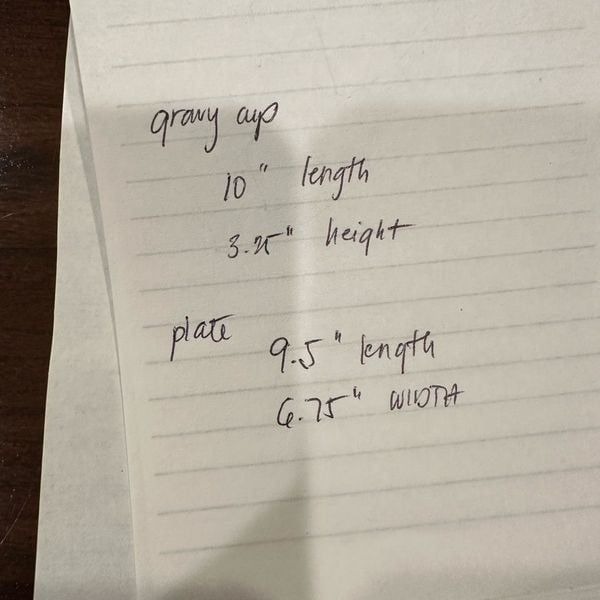 gravy cup
10" length
3.25" height
plate
9.5" length
6.75" WIDTH